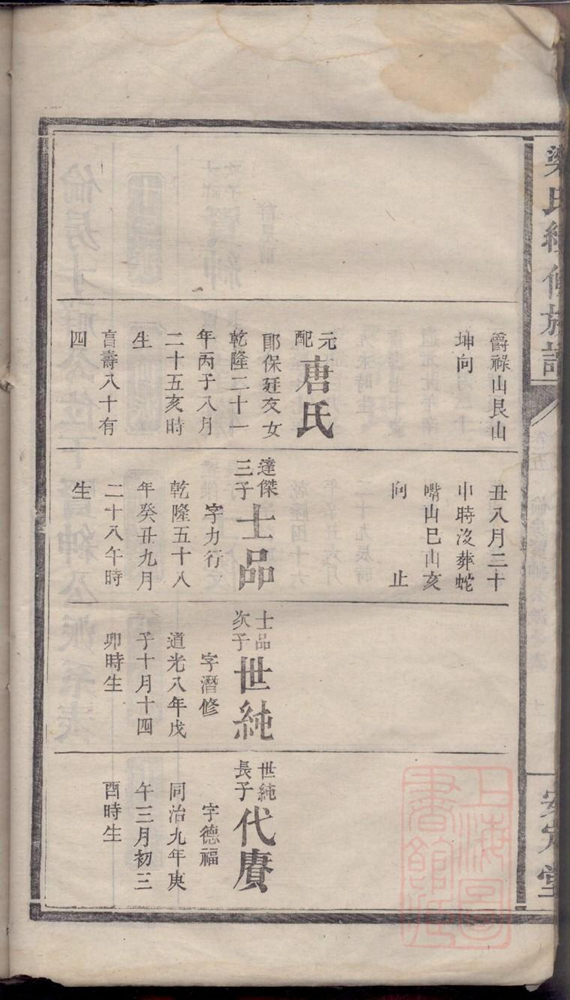 梁氏續修族譜
安定堂
爵祿山艮山
坤向
元配
唐氏
鄖保廷交女
乾隆二十一
年丙子八月
二十五亥時
生
享壽八十有
四
丑八月二十
申時沒葬蛇
嘴山巳山亥
向 止
達傑
三子
士品
字力行
乾隆五十八
年癸丑九月
二十八午時
生
士品
次子
世純
字潛修
道光八年戊
子十月十四
卯時生
世純
長子
代賡
字德福
同治九年庚
午三月初三
酉時生
上海圖
書館藏